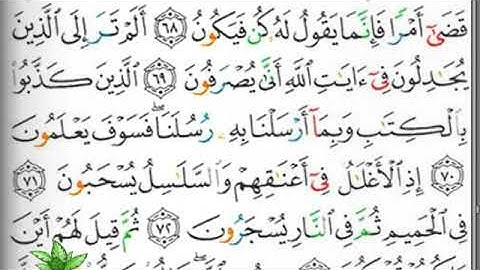 قَضَىٰٓ أَمْرًا فَإِنَّمَا يَقُولُ لَهُۥ كُن فَيَكُونُ ٦٨ أَلَمْ تَرَ إِلَى ٱلَّذِينَ
يُجَٰدِلُونَ فِىٓ ءَايَٰتِ ٱللَّهِ أَنَّىٰ يُصْرَفُونَ ٦٩ ٱلَّذِينَ كَذَّبُوا۟
بِٱلْكِتَٰبِ وَبِمَآ أَرْسَلْنَا بِهِۦ رُسُلَنَا ۖ فَسَوْفَ يَعْلَمُونَ
٧٠ إِذِ ٱلْأَغْلَٰلُ فِىٓ أَعْنَٰقِهِمْ وَٱلسَّلَٰسِلُ يُسْحَبُونَ ٧١
فِى ٱلْحَمِيمِ ثُمَّ فِى ٱلنَّارِ يُسْجَرُونَ ٧٢ ثُمَّ قِيلَ لَهُمْ أَيْنَ